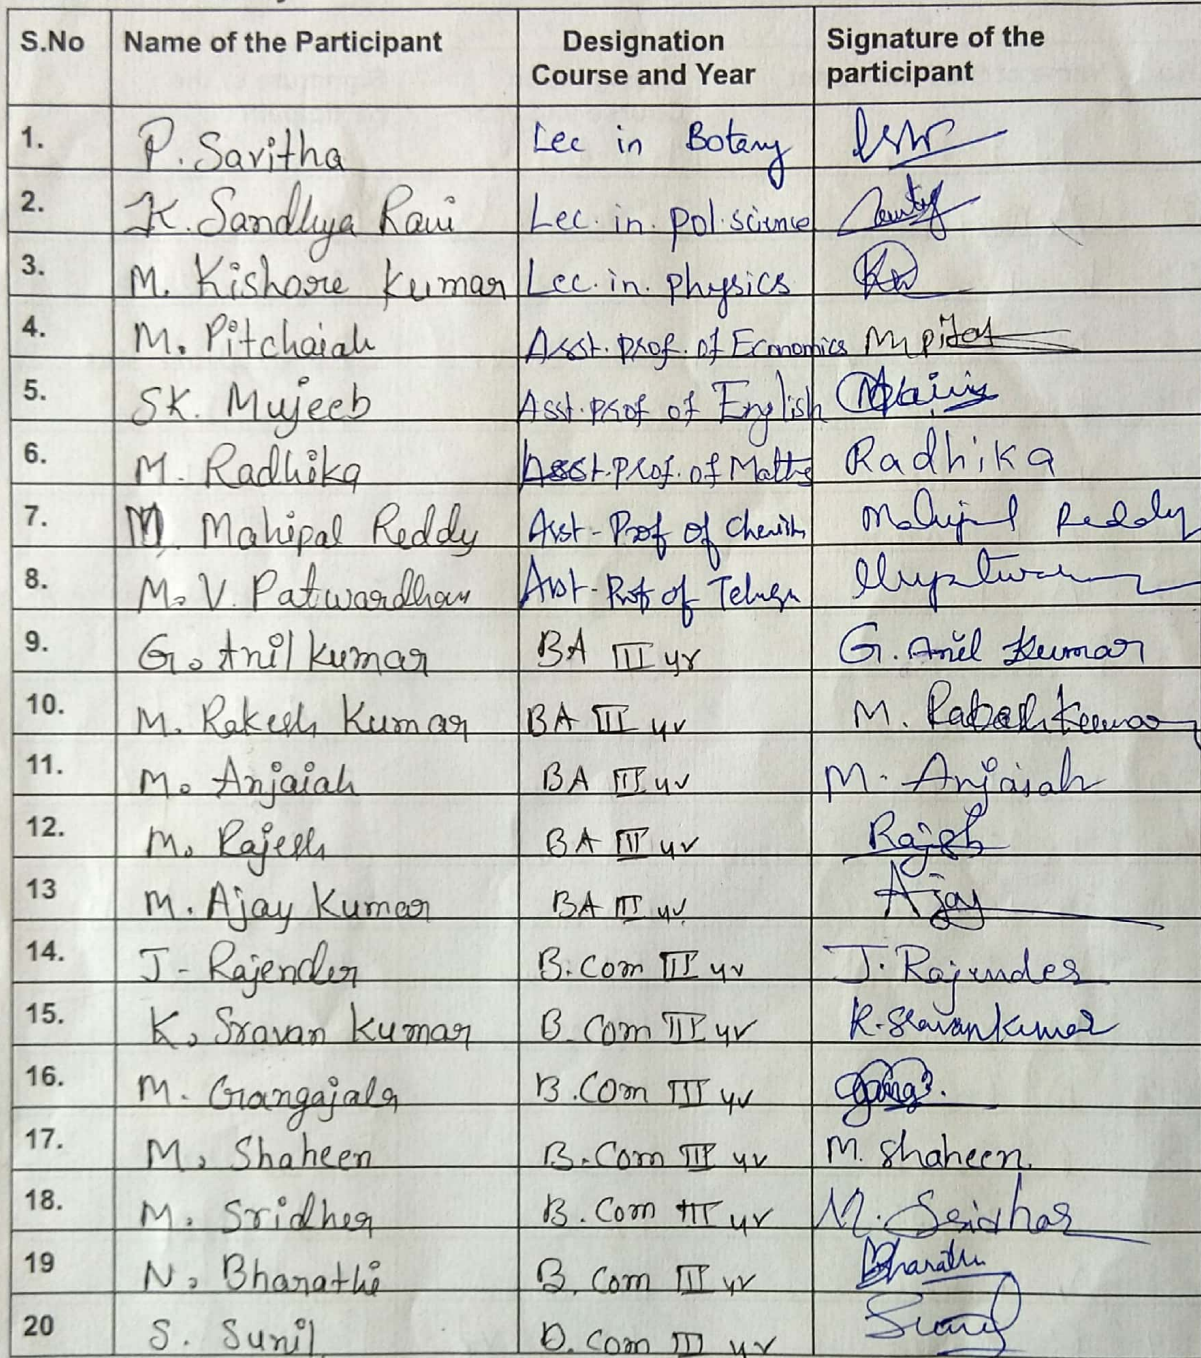 S.No Name of the Participant Designation Course and Year Signature of the participant
1. P. Savitha Lec in Botany
2. K. Sandhya Rani Lec. in. pol. science
3. M. Kishore Kumar Lec. in. physics
4. M. Pitchaiah Asst. prof. of Economics M pitch
5. SK. Mujeeb Asst. prof of English
6. M. Radhika Asst. prof. of Maths Radhika
7. M. Mahipal Reddy Asst - Prof of Chemis Mahipal Reddy
8. M. V. Patwardhan Asst - Prof of Telugu
9. G. Anil Kumar BA III yr G. Anil Kumar
10. M. Rakesh Kumar BA III yr M. Rakesh Kumar
11. M. Anjaiah BA III yr M. Anjaiah
12. M. Rajesh BA III yr Rajesh
13 M. Ajay Kumar BA III yr Ajay
14. J - Rajender B. Com III yr J. Rajender
15. K. Sravan Kumar B. Com III yr K. Sravan Kumar
16. M. Gangajala B. Com III yr
17. M. Shaheen B. Com III yr M. Shaheen
18. M. Sridher B. Com III yr M. Sridhar
19 N. Bharathi B. Com III yr Bharathi
20 S. Sunil B. Com III yr Sunil